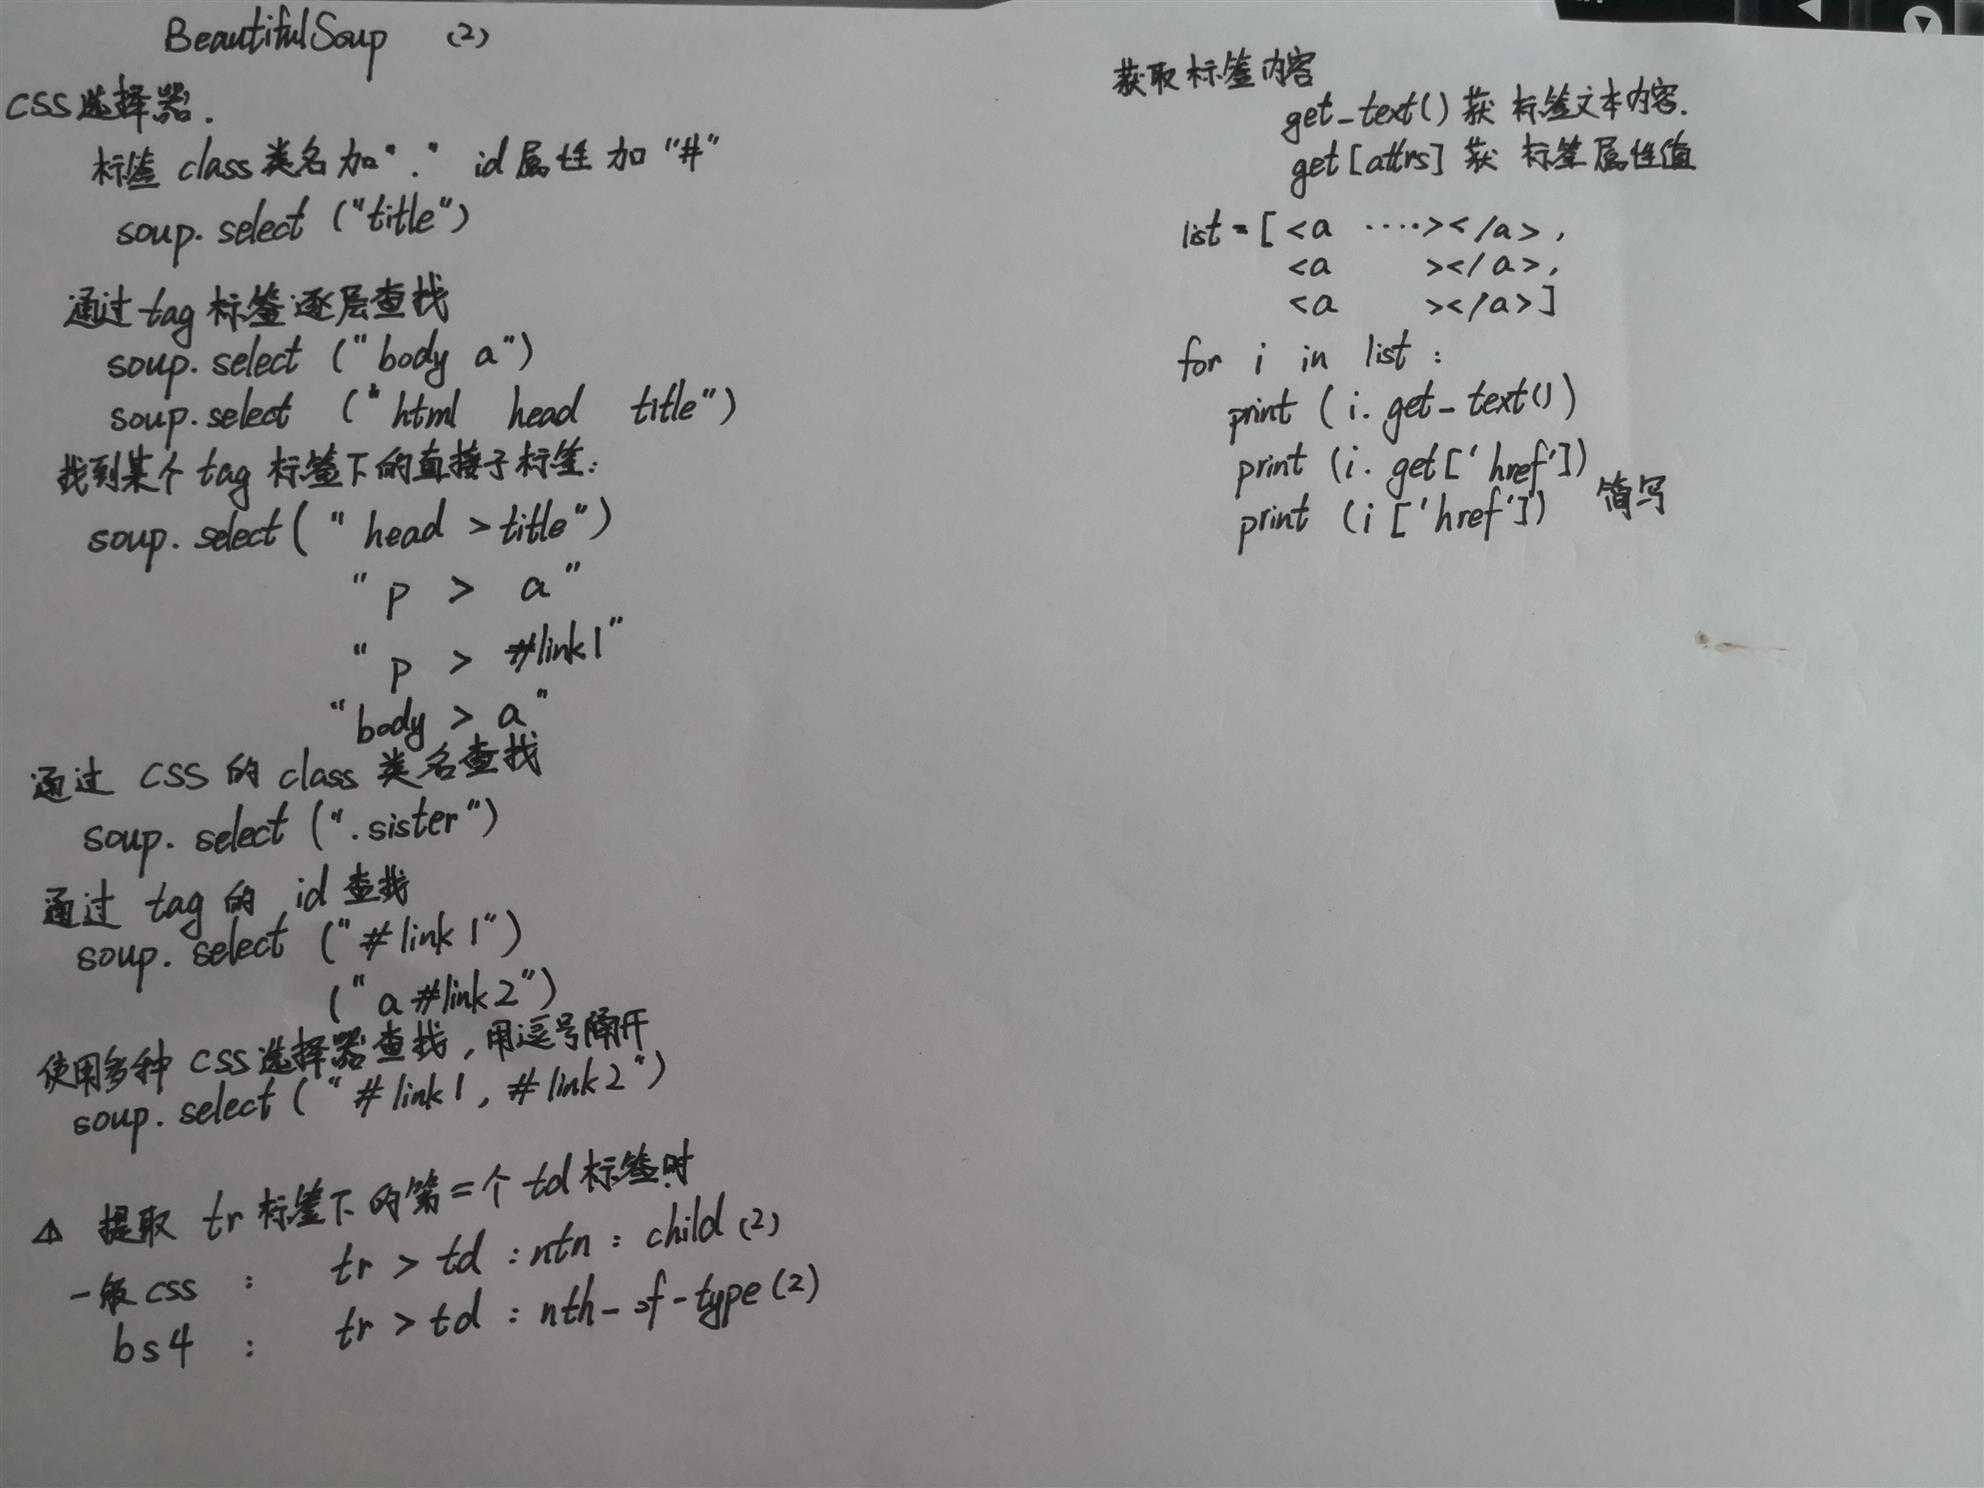 BeautifulSoup (2)
CSS选择器.
标签 class类名加"." id属性加"#"
soup.select ("title")
通过tag标签逐层查找
soup.select ("body a")
soup.select ("html head title")
找到某个tag标签下的直接子标签:
soup.select( "head >title")
"p > a"
"p > #link1"
"body > a"
通过 CSS 的 class 类名查找
soup.select (".sister")
通过 tag 的 id 查找
soup.select ("#link1")
("a #link2")
使用多种 CSS选择器查找,用逗号隔开
soup.select ("#link1, #link2")
⚠ 提取 tr标签下的第二个td标签时
一般css : tr > td :ntn : child (2)
bs4 : tr > td : nth-of-type(2)
获取标签内容
get_text() 获 标签文本内容.
get [attrs] 获 标签属性值
list = [ <a ····></a>,
<a ></a>,
<a ></a>]
for i in list :
print (i. get_text())
print (i. get['href'])
print (i ['href']) 简写